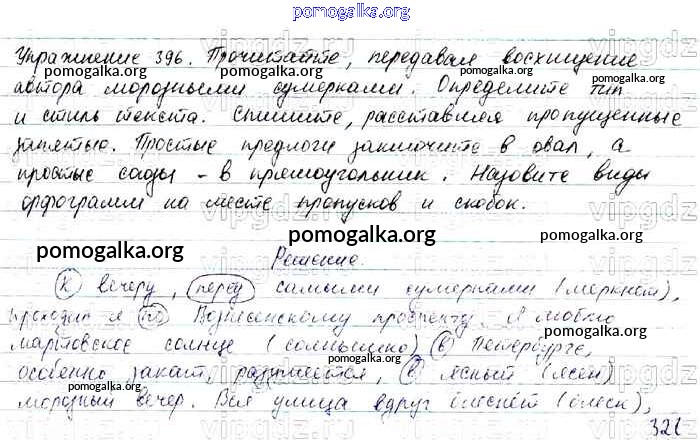 pomogalka.org
Упражнение 396. Прочитайте, передавая восхищение
pomogalka.org pomogalka.org
автора морозными сумерками. Определите тип
и стиль текста. Спишите, расставляя пропущенные
pomogalka.org pomogalka.org
запятые. Простые предлоги заключите в овал, а
простые союзы - в прямоугольник. Назовите виды
pomogalka.org pomogalka.org
орфограмм на месте пропусков и скобок.
pomogalka.org pomogalka.org
Решение.
К вечеру, перед самыми сумерками (меркнет),
pomogalka.org pomogalka.org
проходил я по Вознесенскому проспекту. Я люблю
мартовское солнце (солнышко) в Петербурге,
pomogalka.org pomogalka.org
особенно закат, разумеется, в ясный (ясен)
pomogalka.org
морозный вечер. Вся улица вдруг блеснёт (блеск),
321
vipgdz